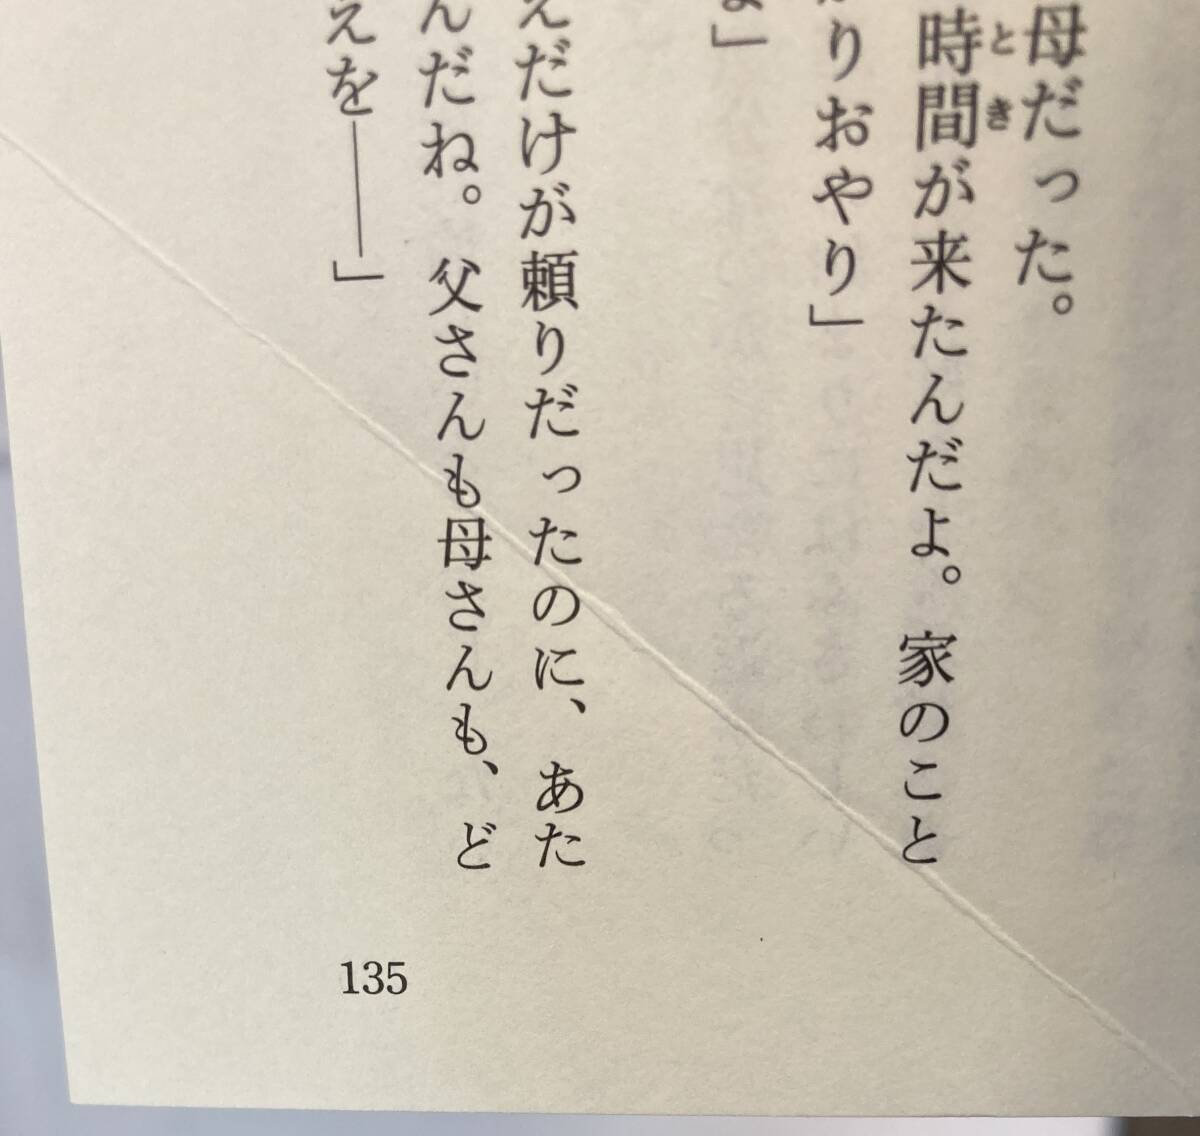 母だった。
時間が来たんだよ。家のこと
とき
りおやり」
よ」
えだけが頼りだったのに、あた
んだね。父さんも母さんも、ど
えを――」
135